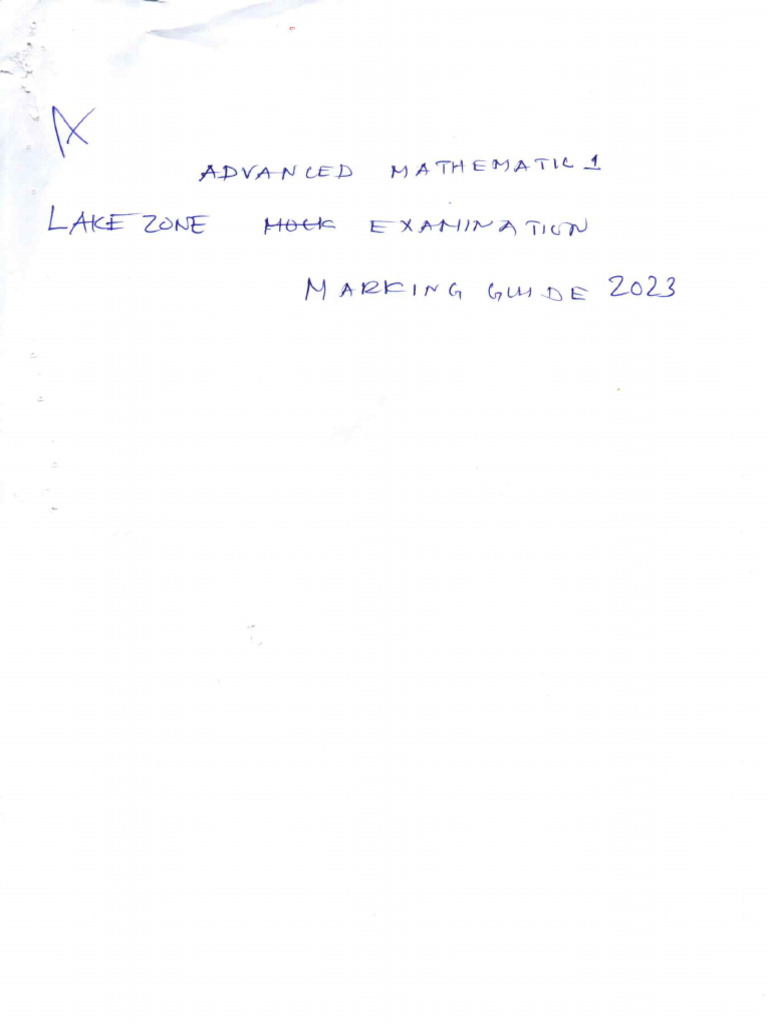 ADVANCED MATHEMATIC 1
LAKE ZONE MOCK EXAMINATION
MARKING GUIDE 2023